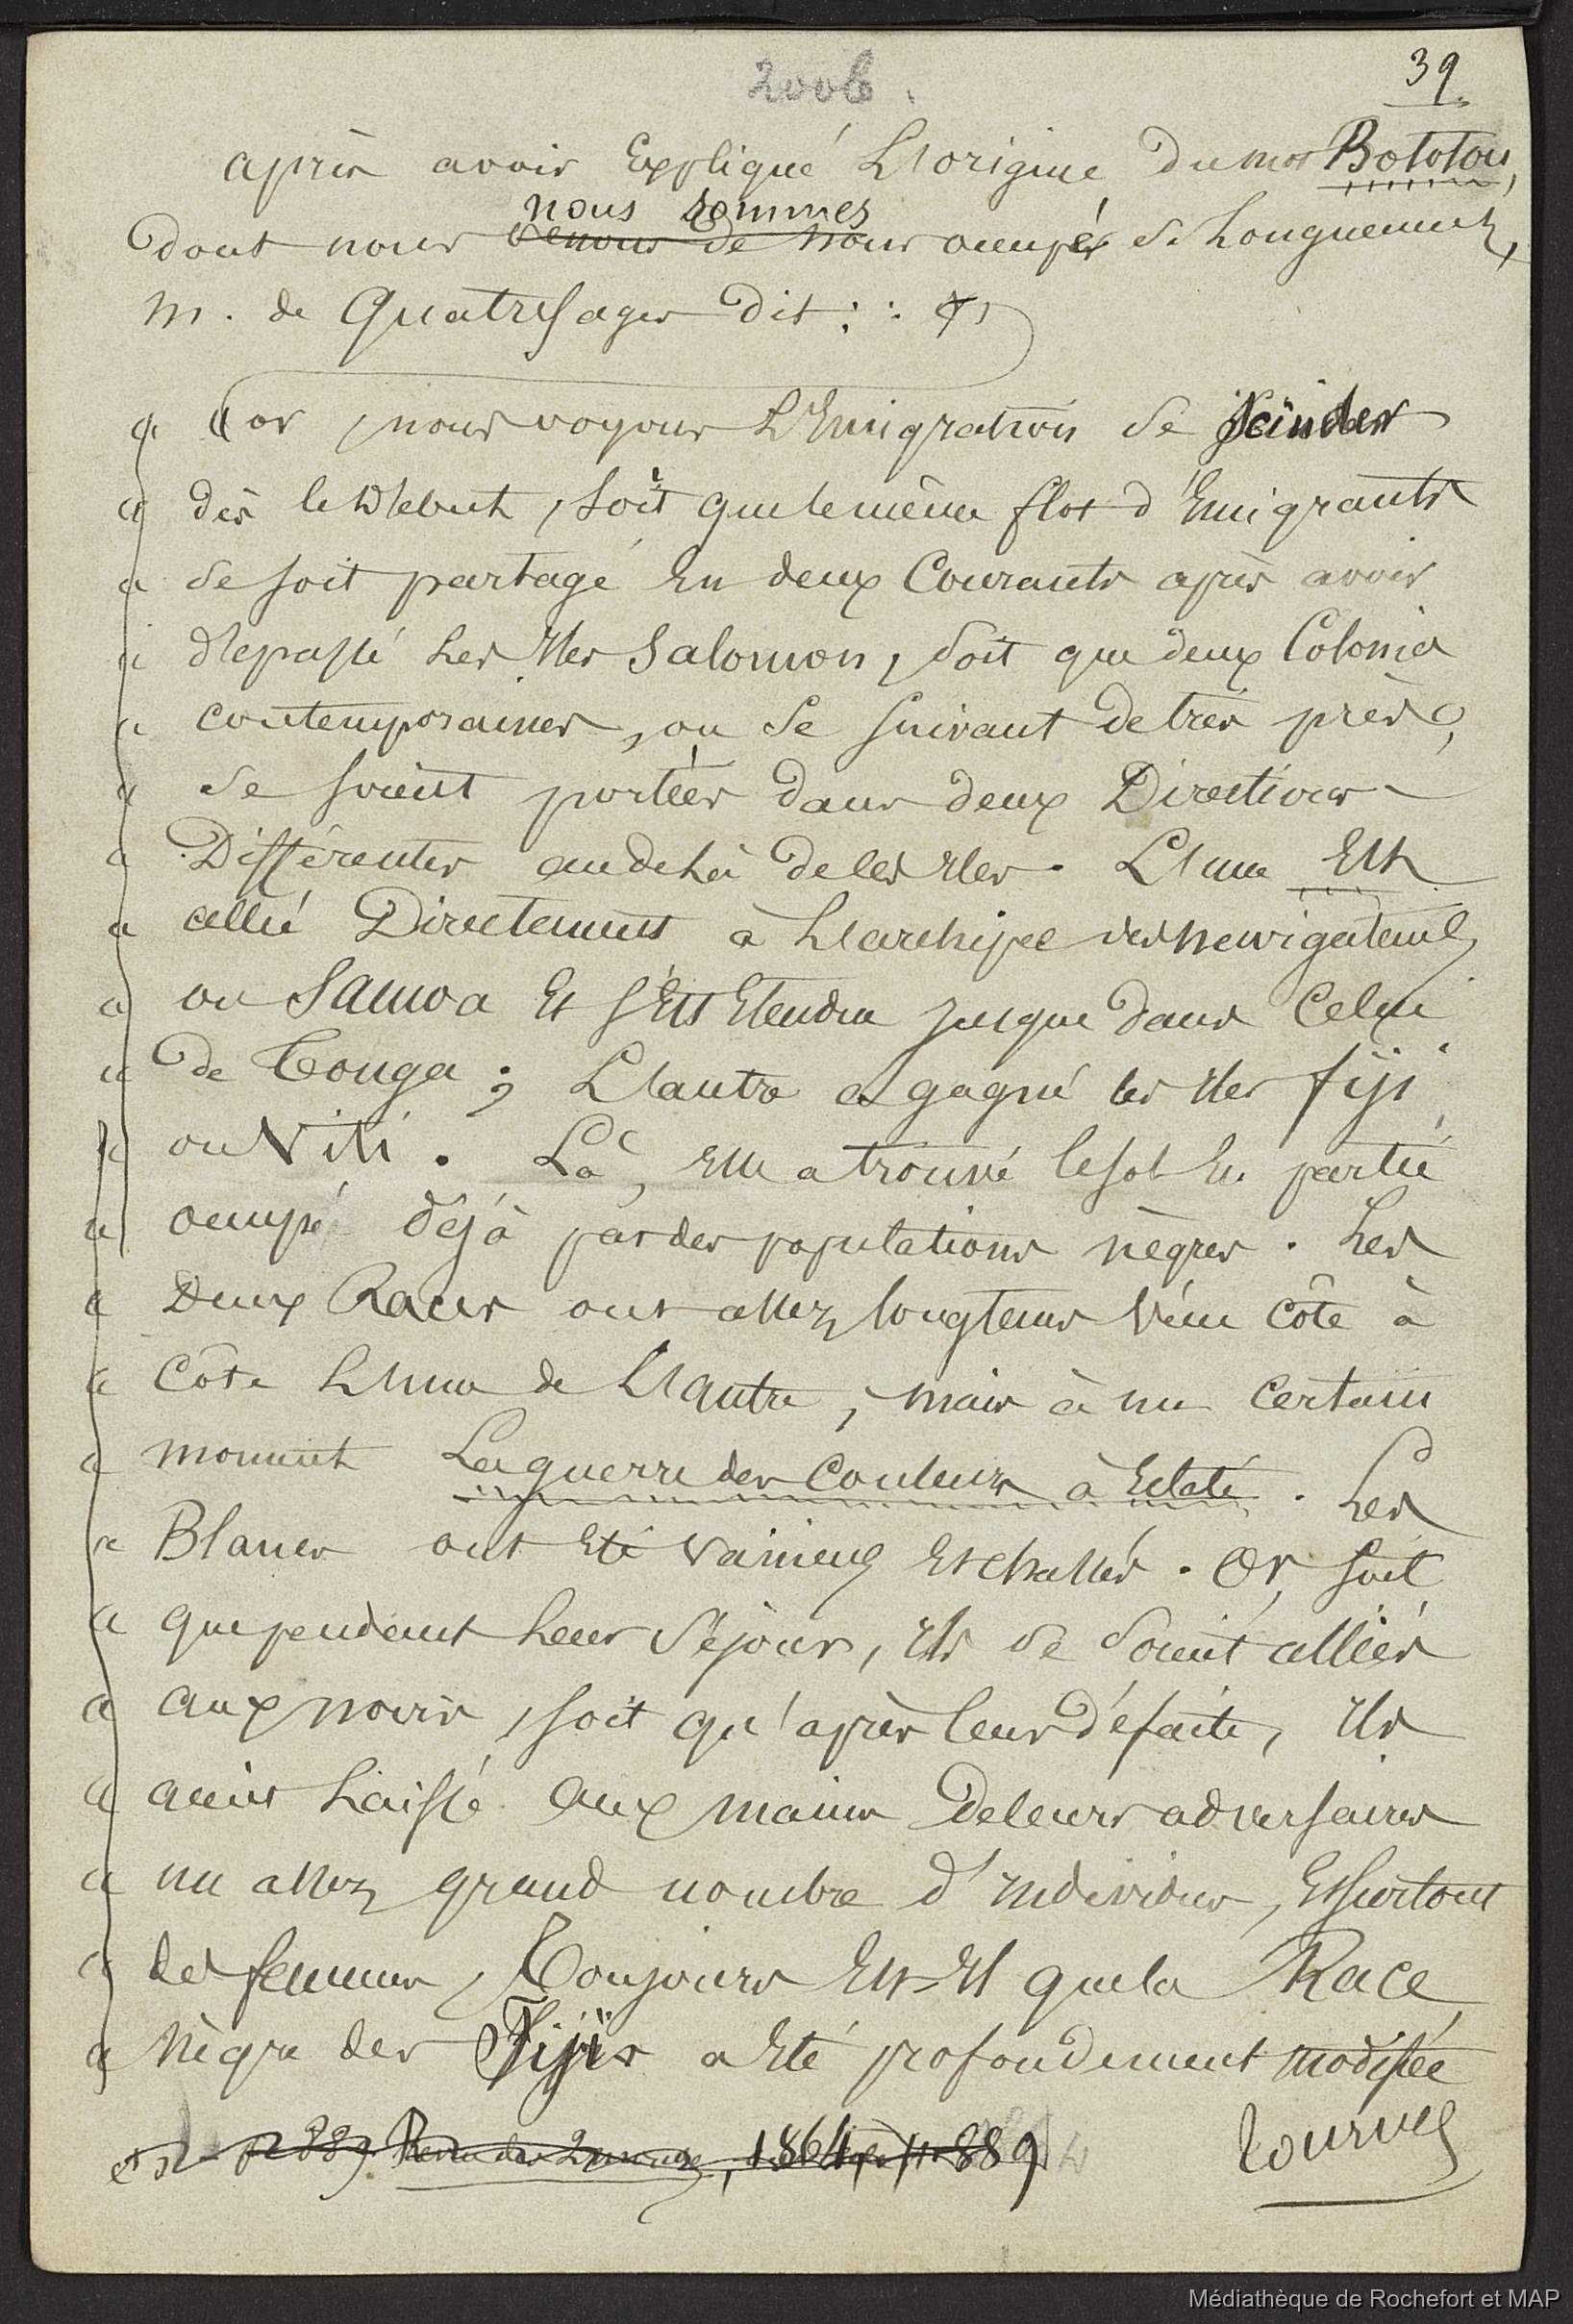 2006.
39.
après avoir Expliqué L'origine du mot Bototou,
nous sommes
Dont nous venons de nous occupés si Longuement,
m. de Quatrefages Dit :
« (or, nous voyons L'Emigration se scinder
« dès le Début, soit que le même flot d'Emigrants
« se soit partagé En deux Courants après avoir
« Dépassé Les Iles Salomon, soit que deux Colonies
« contemporaines, ou se suivant de très près,
« se soient portées dans deux Directions
« Différentes au delà de ces Iles. L'une Est
« allée Directement à L'archipel des navigateurs
« ou Samoa Et s'Est Etendue jusque dans Celui
« de Tonga ; L'autre a gagné les Iles fiji
« ou Viti. Là, Elle a trouvé le sol En partie
« occupé déjà par des populations nègres. Les
« Deux Races ont assez longtems Vécu côte à
« Côte L'une de L'autre, mais à un certain
« moment La guerre des Couleurs à Eclaté. Les
« Blancs ont Eté vaincus Et chassés. Or, soit
« que pendant Leur séjour, Ils se soient alliés
« aux noirs, soit qu'après leur défaite, Ils
« aient Laissé aux mains de leurs adversaires
« un assez grand nombre d'Individus, Et surtout
« des femmes, Toujours Est-Il que la Race
« nègre des Fijis a Eté profondément modifiée
p. 889. Revue des 2 mondes, 1864, p. 889
tournez
Médiathèque de Rochefort et MAP